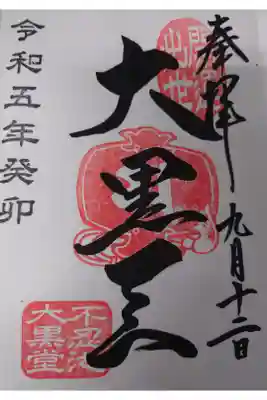 奉拝 九月十二日
出世
大黒天
令和五年癸卯
不忍池
大黒堂